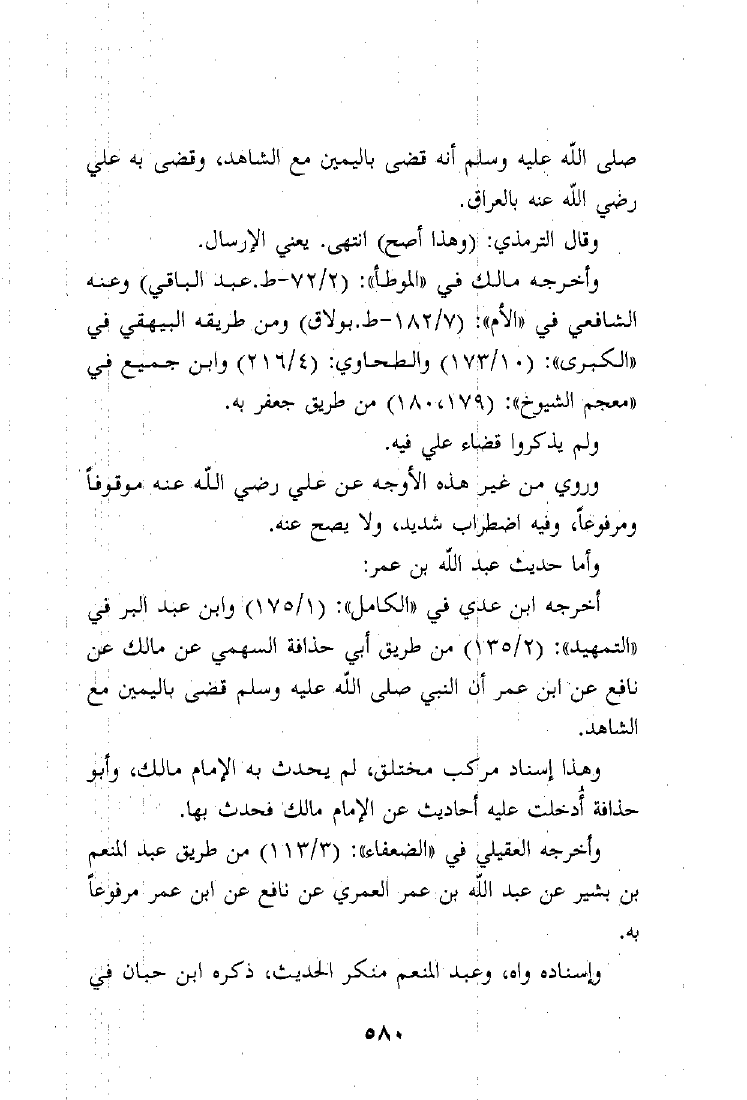 صلى الله عليه وسلم أنه قضى باليمين مع الشاهد، وقضى به علي
رضي الله عنه بالعراق.
وقال الترمذي: (وهذا أصح) انتهى. يعني الإرسال.
وأخرجه مالك في «الموطأ»: (٧٢/٢-ط.عبد الباقي) وعنه
الشافعي في «الأم»: (١٨٢/٧-ط.بولاق) ومن طريقه البيهقي في
«الكبرى»: (١٧٣/١٠) والطحاوي: (٢١٦/٤) وابن جميع في
«معجم الشيوخ»: (١٨٠،١٧٩) من طريق جعفر به.
ولم يذكروا قضاء علي فيه.
وروي من غير هذه الأوجه عن علي رضي الله عنه موقوفاً
ومرفوعاً، وفيه اضطراب شديد، ولا يصح عنه.
وأما حديث عبد الله بن عمر:
أخرجه ابن عدي في «الكامل»: (١٧٥/١) وابن عبد البر في
«التمهيد»: (١٣٥/٢) من طريق أبي حذافة السهمي عن مالك عن
نافع عن ابن عمر أن النبي صلى الله عليه وسلم قضى باليمين مع
الشاهد.
وهذا إسناد مركب مختلق، لم يحدث به الإمام مالك، وأبو
حذافة أُدخلت عليه أحاديث عن الإمام مالك فحدث بها.
وأخرجه العقيلي في «الضعفاء»: (١١٣/٣) من طريق عبد المنعم
بن بشير عن عبد الله بن عمر العمري عن نافع عن ابن عمر مرفوعاً
به.
وإسناده واه، وعبد المنعم منكر الحديث، ذكره ابن حبان في
٥٨٠